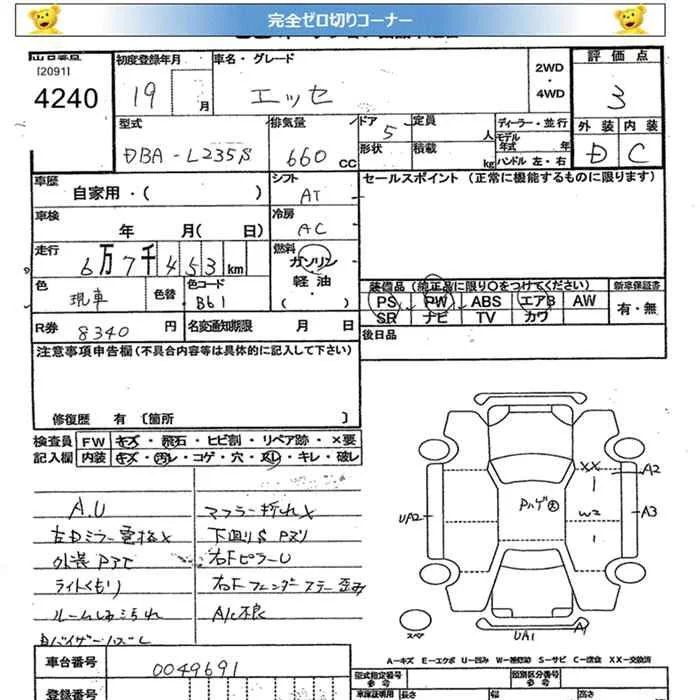 完全ゼロ切りコーナー
[2091]
4240
初度登録年月
19 月
車名・グレード
エッセ
2WD
・
4WD
評価点
3
外装 内装
D C
型式
DBA-L235S
排気量
660 cc
ドア 5
形状
定員 人
積載 kg
ディーラー・並行
モデル年式 年
ハンドル 左・右
車歴
自家用・( )
シフト
AT
セールスポイント (正常に機能するものに限ります)
車検
年 月( 日)
冷房
AC
走行
6万7千453km
燃料
ガソリン
軽油
( )
色
現車
色替
色コード
B61
装備品(純正品に限り〇をつけてください)
新車保証書
PS PW ABS エアB AW
有・無
SR ナビ TV カワ
R券
8340 円
名変通知期限 月 日
後日品
注意事項申告欄(不具合内容等は具体的に記入して下さい)
修復歴 有 〔箇所 〕
検査員 FW キズ・飛石・ヒビ割・リペア跡・×要
記入欄 内装 キズ・汚レ・コゲ・穴・スレ・キレ・破レ
A.U
マフラー折れ×
左ドミラー電格×
下回りS Pヌリ
外装PTT
右FピラーU
ライトくもり
右Fフェンダーステー歪み
ルームしみこられ
A/C不良
Dバイザーハズレ
XX
A2
W2
A3
UA2
Pハゲ大
スペア
UA1
A1
A-キズ E-エクボ U-凹み W-補修跡 S-サビ C-腐食 XX-交換済
車台番号
0049691
登録番号
型式指定番号
参考
類別区分番号
参考
車庫証明用
長さ
幅
高さ